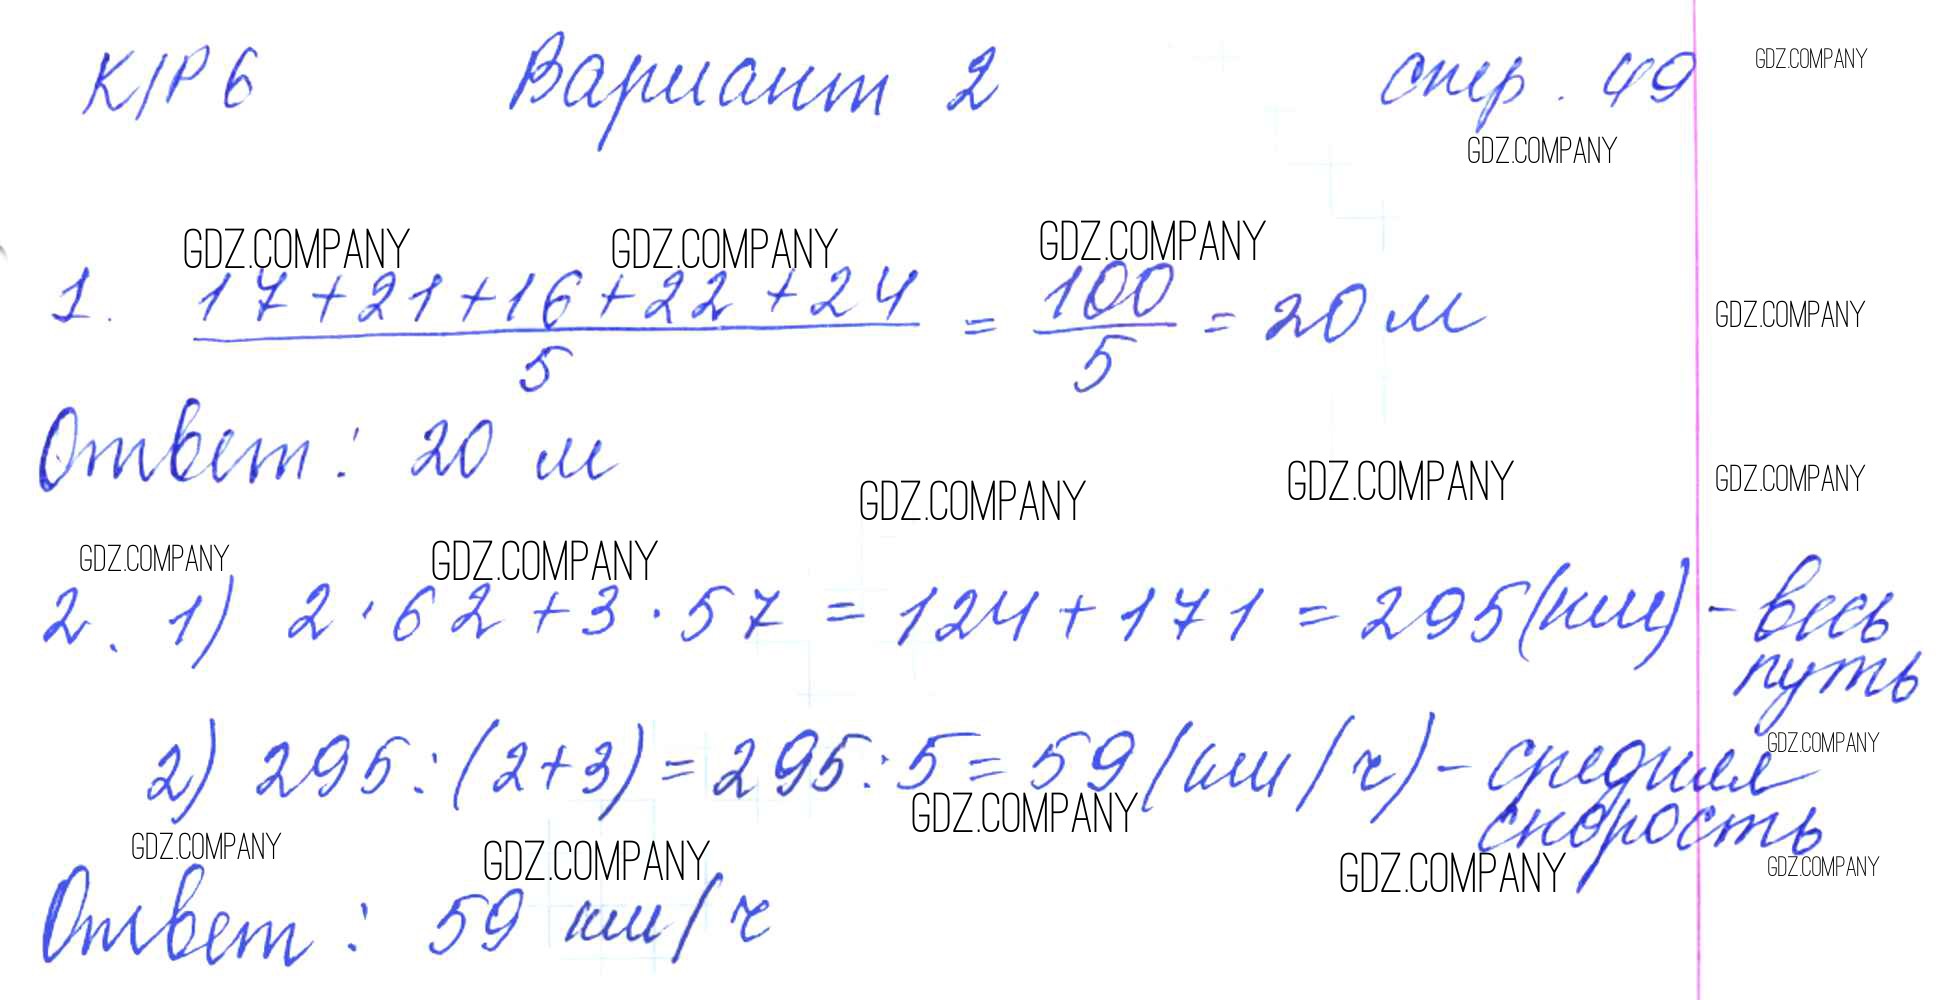 К/Р 6 Вариант 2 стр. 49 GDZ.COMPANY
GDZ.COMPANY
GDZ.COMPANY GDZ.COMPANY GDZ.COMPANY
1. (17+21+16+22+24)/5 = 100/5 = 20 м GDZ.COMPANY
Ответ: 20 м
GDZ.COMPANY GDZ.COMPANY GDZ.COMPANY
GDZ.COMPANY GDZ.COMPANY
2. 1) 2·62+3·57 = 124+171 = 295(км) - весь
путь
GDZ.COMPANY
2) 295:(2+3)=295:5=59(км/ч) - средняя
скорость
GDZ.COMPANY
GDZ.COMPANY GDZ.COMPANY GDZ.COMPANY GDZ.COMPANY
Ответ: 59 км/ч